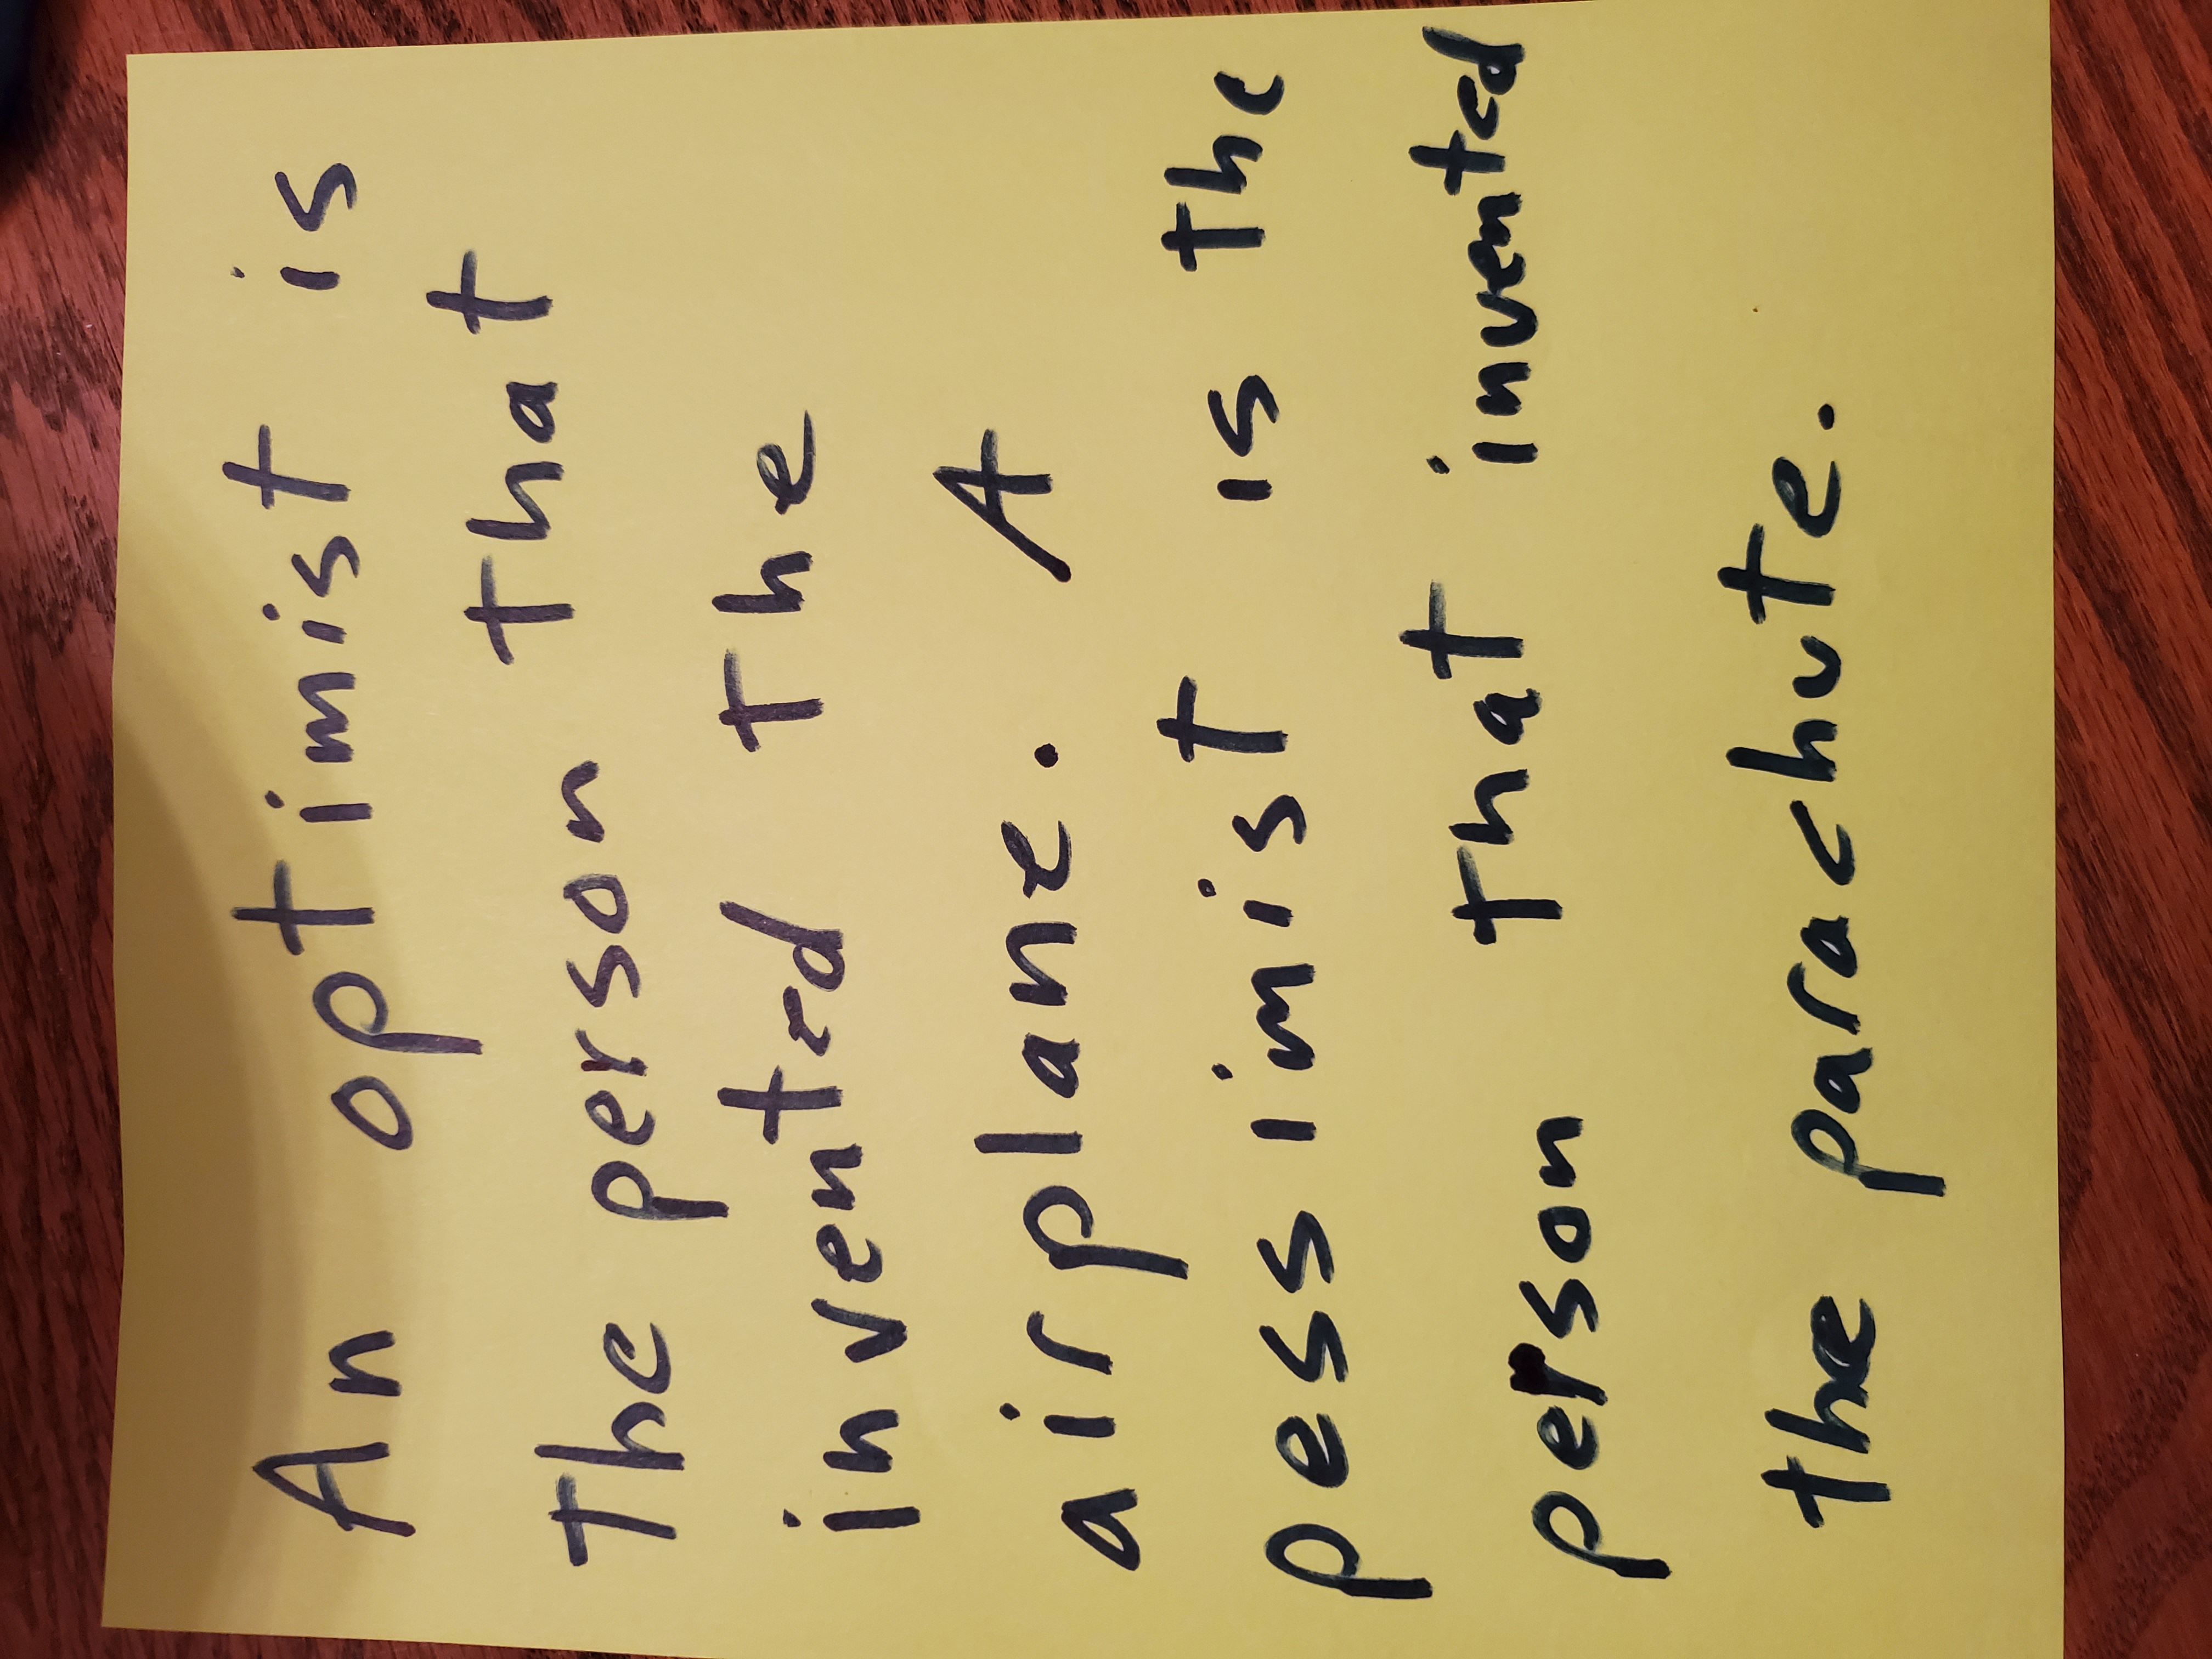 An optimist is
the person that
invented the
airplane. A
pessimist is the
person that invented
the parachute.